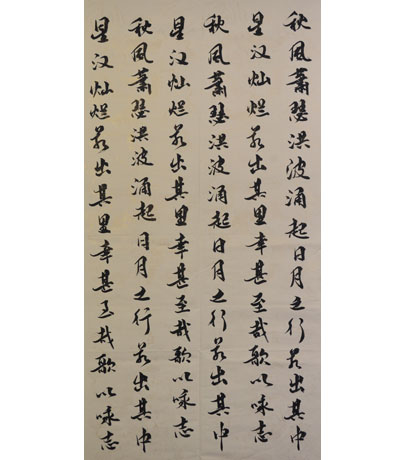 秋风萧瑟洪波涌起日月之行若出其中
星汉灿烂若出其里幸甚至哉歌以咏志
秋风萧瑟洪波涌起日月之行若出其中
星汉灿烂若出其里幸甚至哉歌以咏志
秋风萧瑟洪波涌起日月之行若出其中
星汉灿烂若出其里幸甚至哉歌以咏志